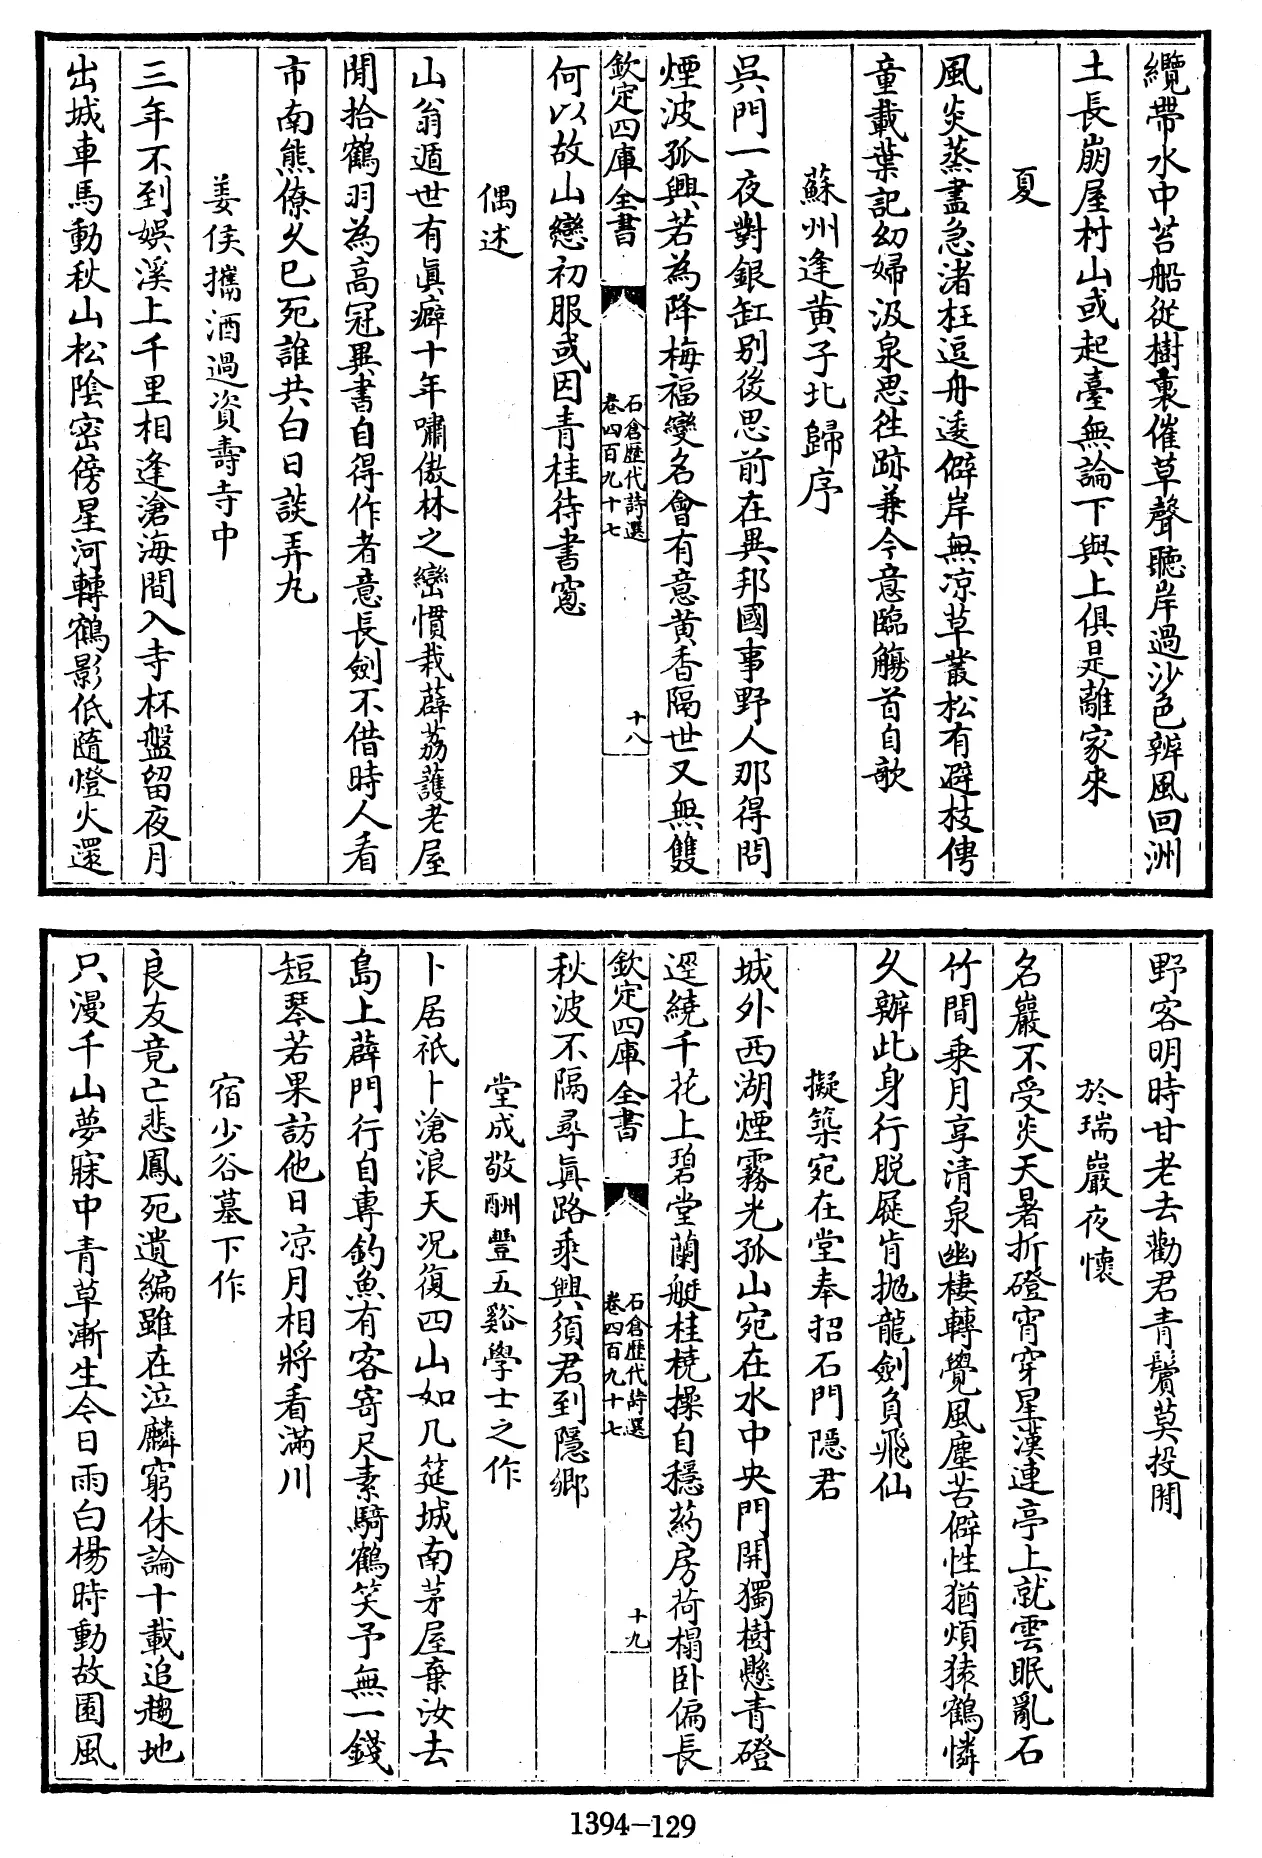 纜帶水中苔船從樹裏催草聲聽岸過沙色辨風回洲
土長崩屋村山或起臺無論下與上俱是離家來
夏
風炎蒸盡急渚枉逗舟逶僻岸無凉草叢松有避枝傳
童載葉記幼婦汲泉思徃跡兼今意臨觴首自歌
蘇州逢黄子北歸序
吳門一夜對銀缸别後思前在異邦國事野人那得問
煙波孤興若為降梅福變名會有意黄香隔世又無雙
欽定四庫全書
石倉歷代詩選
卷四百九十七
十八
何以故山戀初服或因青桂待書窻
偶述
山翁遁世有眞癖十年嘯傲林之巒慣栽薜荔護老屋
閒拾鶴羽為高冠異書自得作者意長劍不借時人看
市南熊僚久已死誰共白日談弄丸
姜侯攜酒過資壽寺中
三年不到娛溪上千里相逢滄海間入寺杯盤留夜月
出城車馬動秋山松陰密傍星河轉鶴影低隨燈火還
野客明時甘老去勸君青鬢莫投閒
於瑞巖夜懷
名巖不受炎天暑折磴宵穿星漢連亭上就雲眠亂石
竹間乗月享清泉幽棲轉覺風塵苦僻性猶煩猿鶴憐
久辦此身行脱屣肯抛龍劍負飛仙
擬築宛在堂奉招石門隱君
城外西湖煙霧光孤山宛在水中央門開獨樹懸青磴
逕繞千花上碧堂蘭艇桂橈操自穩葯房荷榻卧偏長
欽定四庫全書
石倉歷代詩選
卷四百九十七
十九
秋波不隔尋眞路乘興須君到隱鄉
堂成敬酬豐五谿學士之作
卜居祇卜滄浪天况復四山如几筵城南茅屋棄汝去
島上薜門行自專釣魚有客寄尺素騎鶴笑予無一錢
短琴若果訪他日凉月相將看滿川
宿少谷墓下作
良友竟亡悲鳳死遺編雖在泣麟窮休論十載追趨地
只漫千山夢寐中青草漸生今日雨白楊時動故園風
1394—129